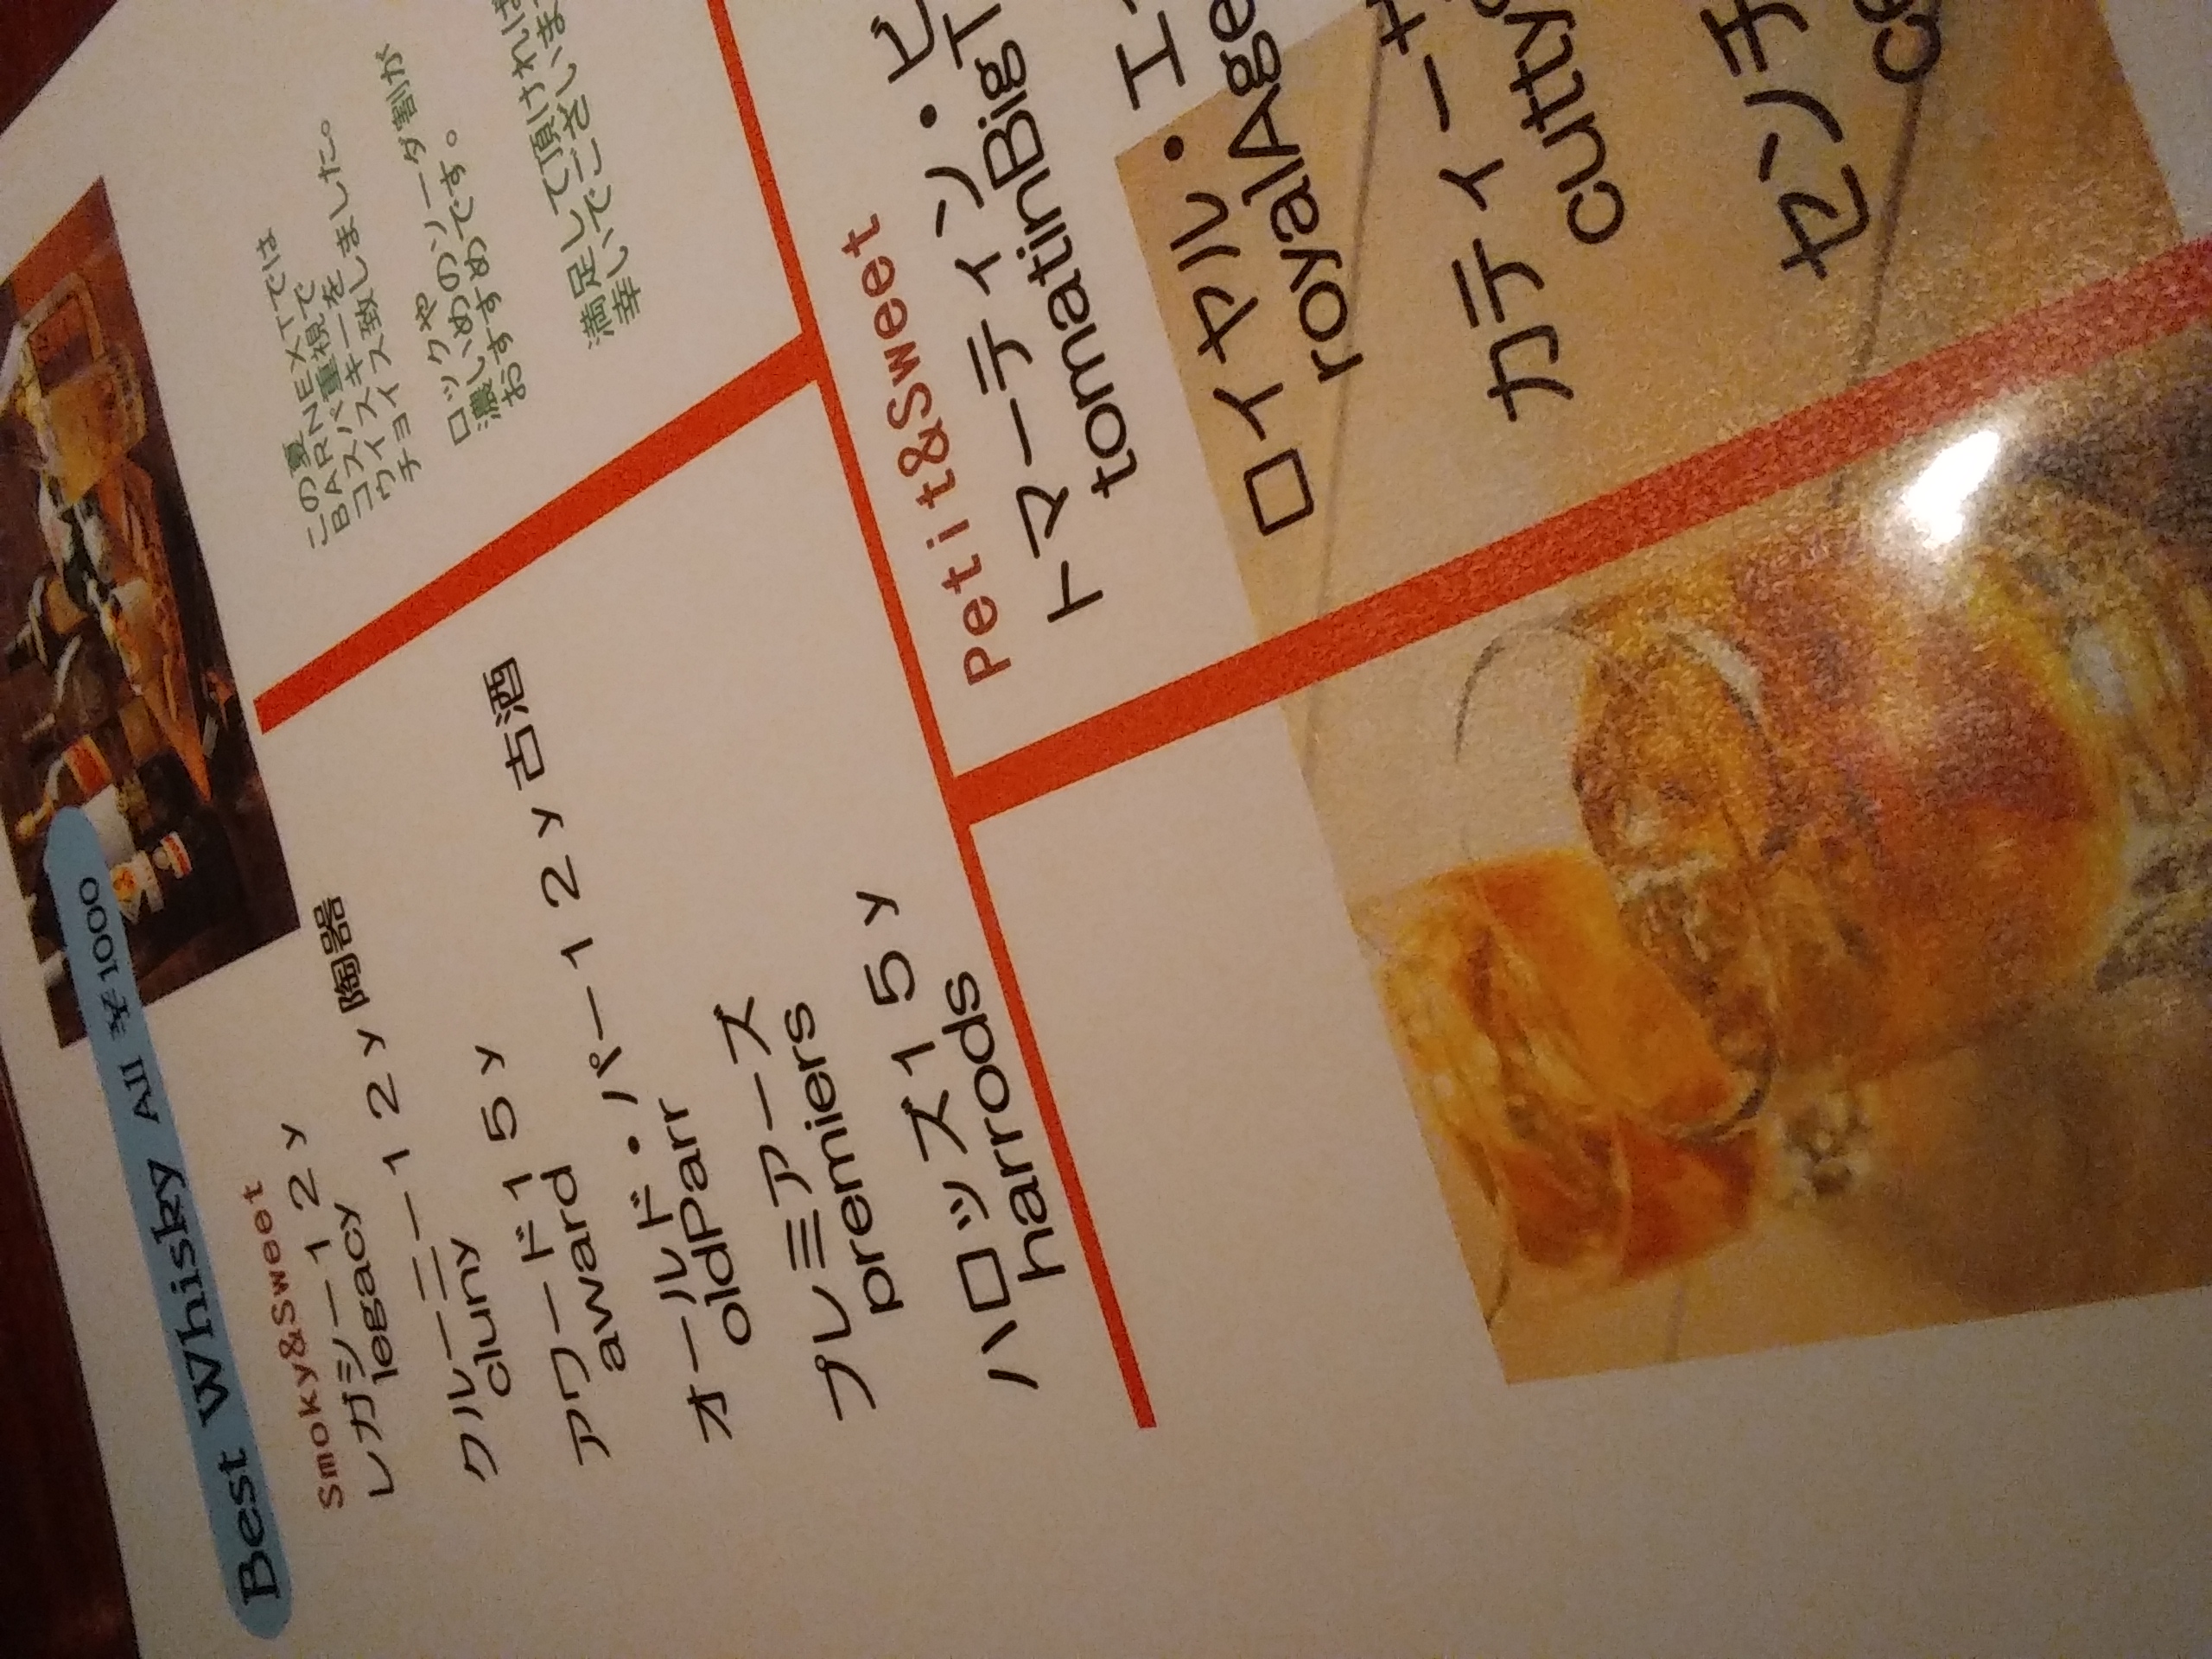 Best Whisky All ¥1000
Smoky&Sweet
レガシー12y
legacy
クルーニー12y陶器
cluny
アワード15y
award
オールド・パー12y古酒
oldParr
プレミアース
premiers
ハロッズ15y
harrods
この夏
BAR NEXTでは
コスパ重視で
ウイスキーを
チョイス致しました。
ロックや
濃いめのソーダ割が
おすすめです。
満足して頂ければ
幸いでございま
Petit&Sweet
トマーティン・ビ
tomatinBigT
ロイヤル・エ
royalAge
カティーサ
cutty
センチ
ce